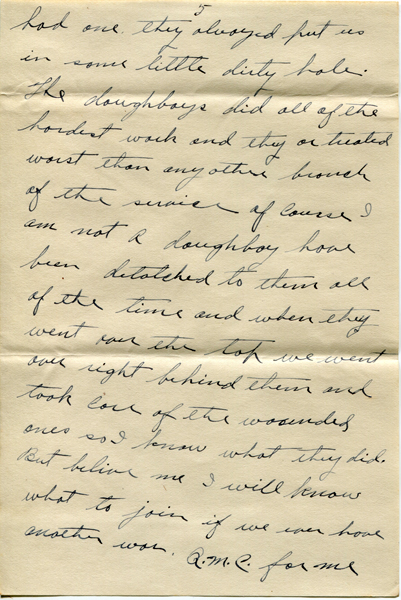 5
had one. they alwayed put us
in some little dirty hole.
The doughboys did all of the
hardest work and they or treated
worst than any other branch
of the service of course I
am not a doughboy have
been detatched to them all
of the time and when they
went over the top we went
over right behind them and
took care of the wounded
ones so I know what they did.
But belive me I will know
what to join if we ever have
another war. Q.M.C. for me